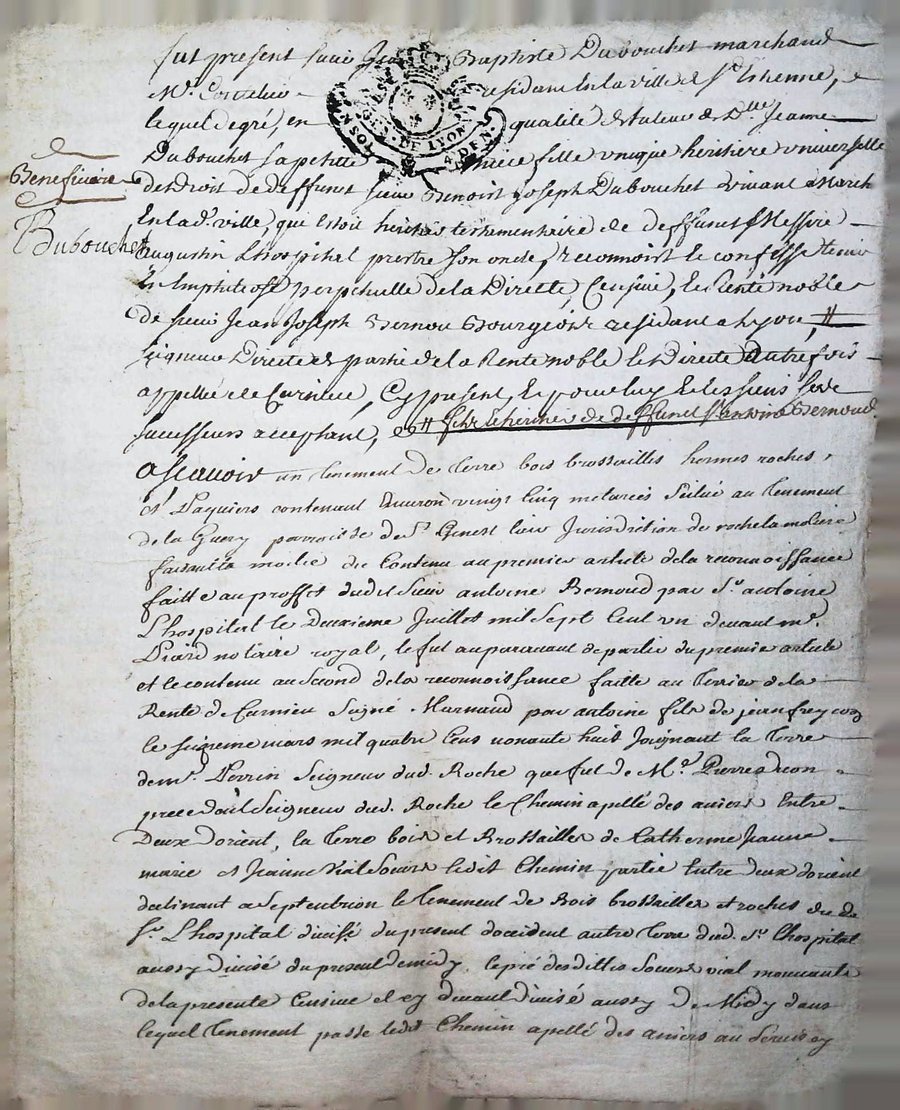 fut present sieur Jean Baptiste Dubouchet marchand
Me. residant en la ville de St. Etienne,
lequel de gré, en qualité de tuteur de Dlle Jeanne
Dubouchet sa petite niece fille unique heritiere universelle
de droit de deffunt sieur Benoist Joseph Dubouchet vivant March
en lad. ville, qui etoit heritier testamentaire de deffunt Messire
augustin Lhospital prestre son oncle, reconnoist et confesse tenir
en Emphiteose perpetuelle de la Directe, Censive, et Rente noble
de sieur Jean Joseph Bernou Bourgeois residant a Lyon, #
seigneur Directe de partie de la Rente noble et Directe Autrefois
appellée de Curnieu, Cy present, et pour luy et les siens
successeurs acceptant, # fils et heritier de deffunt Sr. antoine Bernoud
Ascavoir un Tenement de Terre bois brossailles hermes roches
et Paquiers contenant Environ vingt cinq meterées Scitué au Tenement
de la paroisse de St. Genest lerv Jurisdiction de roche la moliere
faisant la moitié du Contenu au premier article de la reconnoissance
faitte au proffit dudit Sieur antoine Bernoud par Sr. antoine
Lhospital le Deuxieme Juillet mil Sept Cent un devant me.
Picard notaire royal, et fut auparavant de partie du premier article
et le contenu au Second de la reconnoissance faitte au Terrier de la
Rente de Curnieu Signé Marnaud par antoine fils de jean
le seizieme mars mil quatre Cens nonante huit Joignant la Terre
de mr. Perrin Seigneur dud. Roche que fut de Mr. Pierre
precedant Seigneur dud. Roche le Chemin apellé des aniers Entre
Deux d'orient, la Terre bois et Brossailles de Catherine Jeanne
marie et Jeanne Vial Soeurs ledit Chemin partie Entre deux d'orient
declinant a Septentrion le Tenement de Bois brossailles et roches du de
Sr. Lhospital divisé du present d'occident autre Terre dud. Sr. Lhospital
aussy Divisé du present de midy, le pré desdittes Soeurs vial mouvante
de la presente Censive et cy devant Divisé aussy de Midy dans
lequel Tenement passe ledit Chemin apellé des aniers
Beneficiere
Dubouchet
DE LYON
4 DEN.